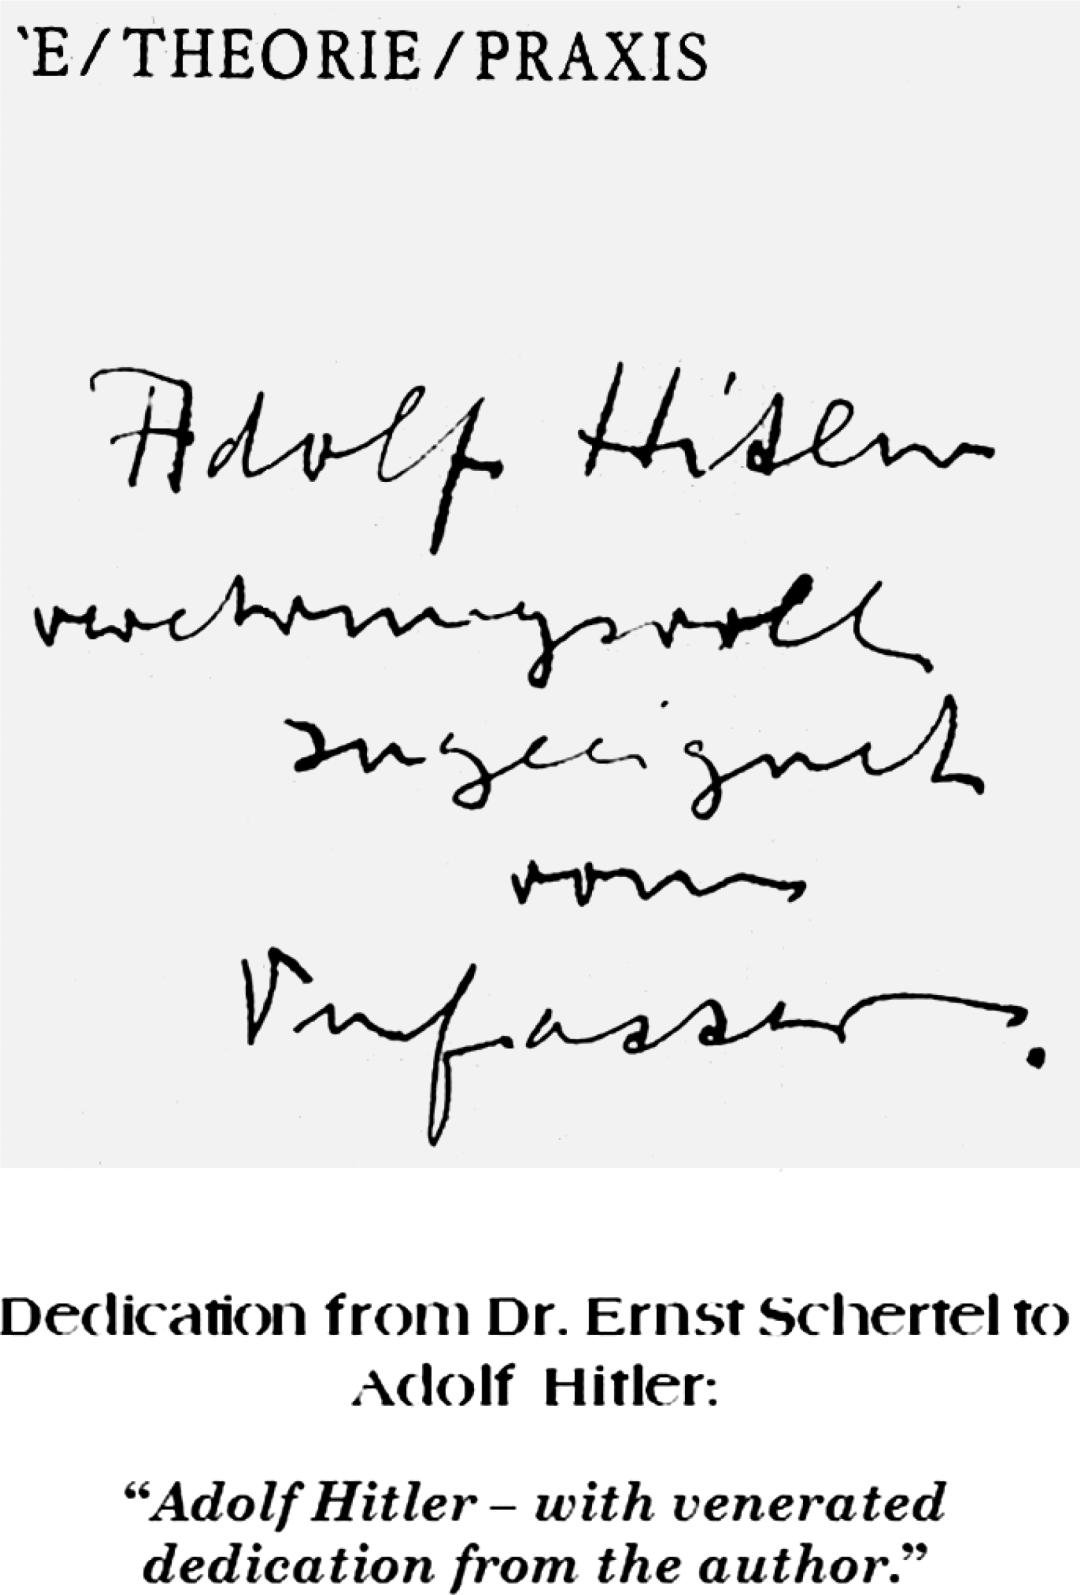 `E/THEORIE/PRAXIS
Adolf Hitler
verehrungsvoll
zugeeignet
vom
Verfasser.
Dedication from Dr. Ernst Schertel to
Adolf Hitler:
“Adolf Hitler – with venerated
dedication from the author.”